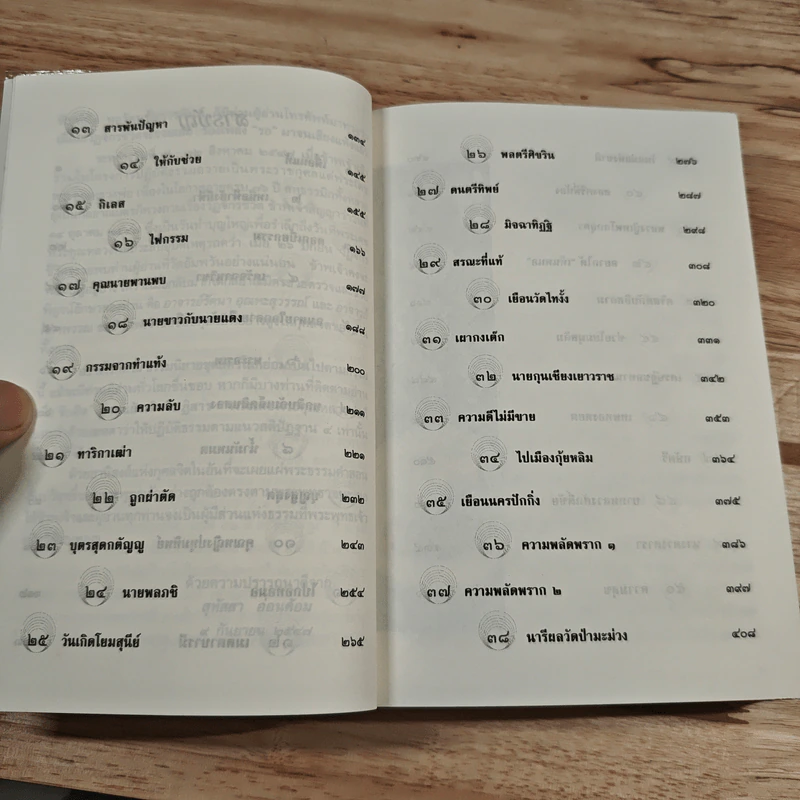 ๑๓ สารพันปัญหา ๑๓๔
๑๔ ให้กับช่วย ๑๔๕
๑๕ กิเลส ๑๕๕
๑๖ ไฟกรรม ๑๖๖
๑๗ คุณนายพวนพบ ๑๗๗
๑๘ นายขาวกับนายแดง ๑๘๘
๑๙ กรรมจากทำแท้ง ๒๐๐
๒๐ ความลับ ๒๑๑
๒๑ ทาริกาเฒ่า ๒๒๑
๒๒ ถูกผ่าตัด ๒๓๒
๒๓ บุตรสุดกตัญญู ๒๔๓
๒๔ นายพลภชิ ๒๕๔
๒๕ วันเกิดโยมสุนีย์ ๒๖๕
๒๖ พลตรีศิขริน ๒๗๖
๒๗ ดนตรีทิพย์ ๒๘๗
๒๘ มิจฉาทิฏฐิ ๒๙๘
๒๙ สรณะที่แท้ ๓๐๘
๓๐ เยือนวัดไทงั้ง ๓๒๐
๓๑ เผากงเต็ก ๓๓๑
๓๒ นายกุนเชียงเยาวราช ๓๔๒
๓๓ ความดีไม่มีขาย ๓๕๓
๓๔ ไปเมืองกุ้ยหลิม ๓๖๔
๓๕ เยือนนครปักกิ่ง ๓๗๕
๓๖ ความพลัดพราก ๑ ๓๘๖
๓๗ ความพลัดพราก ๒ ๓๙๗
๓๘ นารีผลวัดป่ามะม่วง ๔๐๘